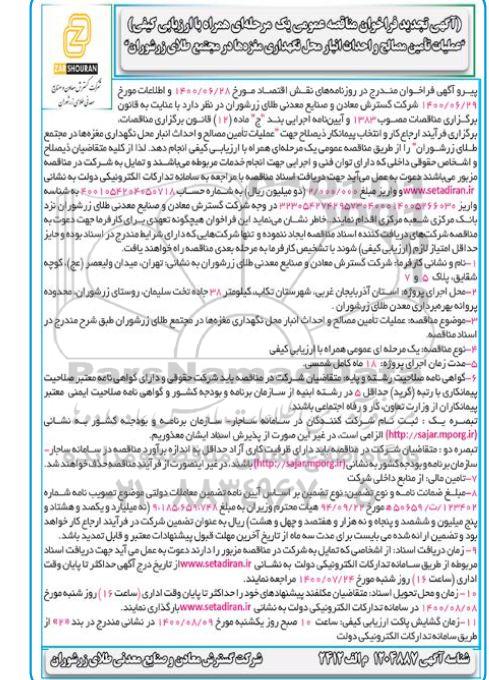 (آگهی تجدید فراخوان مناقصه عمومی یک مرحله‌ای همراه با ارزیابی کیفی)
"عملیات تأمین مصالح و احداث انبار محل نگهداری مغزه‌ها در مجتمع طلای زرشوران"
ZARSHOURAN
شرکت گسترش معادن و صنایع معدنی طلای زرشوران
پیرو آگهی فراخوان مندرج در روزنامه‌های نقش اقتصاد مورخ ۱۴۰۰/۰۶/۲۸ و اطلاعات مورخ
۱۴۰۰/۰۶/۲۹ شرکت گسترش معادن و صنایع معدنی طلای زرشوران در نظر دارد با عنایت به قانون
برگزاری مناقصات مصوب ۱۳۸۳ و آیین‌نامه اجرایی بند "ج" ماده (۱۲) قانون برگزاری مناقصات،
برگزاری فرآیند ارجاع کار و انتخاب پیمانکار ذیصلاح جهت "عملیات تأمین مصالح و احداث انبار محل نگهداری مغزه‌ها در مجتمع
طلای زرشوران" را از طریق مناقصه عمومی یک مرحله‌ای همراه با ارزیابی کیفی انجام دهد. لذا از کلیه متقاضیان ذیصلاح
و اشخاص حقوقی داخلی که دارای توان فنی و اجرایی جهت انجام خدمات مربوطه می‌باشند و تمایل به شرکت در مناقصه
مزبور می‌باشند دعوت به عمل می‌آید جهت دریافت اسناد مناقصه با مراجعه به سامانه تدارکات الکترونیکی دولت به نشانی
www.setadiran.ir و واریز مبلغ ۲/۰۰۰/۰۰۰ (دو میلیون ریال) به شماره حساب ۴۰۰۱۰۵۴۲۰۴۰۵۰۷۱۸ به شناسه
واریز در وجه شرکت گسترش معادن و صنایع معدنی طلای زرشوران نزد
بانک مرکزی شعبه مرکزی اقدام نمایند. خاطر نشان می‌نماید این فراخوان هیچگونه تعهدی برای کارفرما جهت دعوت به
مناقصه شرکت‌های دریافت کننده اسناد مناقصه ایجاد ننموده و تنها شرکت‌هایی که دارای شرایط مندرج در اسناد بوده و حایز
حداقل امتیاز لازم (ارزیابی کیفی) شوند با تشخیص کارفرما به مرحله بعدی مناقصه راه خواهند یافت.
۱-نام و نشانی کارفرما: شرکت گسترش معادن و صنایع معدنی طلای زرشوران به نشانی: تهران، میدان ولیعصر (عج)، کوچه
شقایق، پلاک ۵ و ۷
۲-محل اجرای پروژه: استان آذربایجان غربی، شهرستان تکاب، کیلومتر ۳۸ جاده تخت سلیمان، روستای زرشوران، محدوده
پروانه بهره‌برداری معدن طلای زرشوران.
۳-موضوع مناقصه: عملیات تأمین مصالح و احداث انبار محل نگهداری مغزه‌ها در مجتمع طلای زرشوران طبق شرح مندرج در
اسناد مناقصه.
۴-نوع مناقصه: یک مرحله ای عمومی همراه با ارزیابی کیفی
۵-مدت زمان اجرای پروژه: ۱۸ ماه کامل شمسی.
۶-گواهی نامه صلاحیت رشته و پایه: متقاضیان شرکت در مناقصه باید شرکت حقوقی و دارای گواهی نامه معتبر صلاحیت
پیمانکاری با رتبه (گرید) حداقل ۵ در رشته ابنیه از سازمان برنامه و بودجه کشور و گواهی نامه صلاحیت ایمنی معتبر
پیمانکاران از وزارت تعاون، کار و رفاه اجتماعی باشند.
تبصره یک: ثبت نام شرکت کنندگان در سامانه ساجار- سازمان برنامه و بودجه کشور به نشانی
(http://sajar.mporg.ir) الزامی است، در غیر این صورت از پذیرش اسناد ایشان معذوریم.
تبصره دو: متقاضیان شرکت در مناقصه باید دارای ظرفیت کاری آزاد حداقل به اندازه برآورد مناقصه در سامانه ساجار-
سازمان برنامه و بودجه کشور به نشانی (http://sajar.mporg.ir) باشند، در غیر اینصورت از فرآیند مناقصه حذف خواهند شد.
۷-تامین مالی: از منابع داخلی شرکت
۸-مبلغ ضمانت نامه و نوع تضمین: نوع تضمین بر اساس آیین نامه تضمین معاملات دولتی موضوع تصویب نامه شماره
۱۲۳۴۰۲/ت ۵۰۶۵۹ه مورخ ۹۴/۰۹/۲۲ هیأت محترم وزیران به مبلغ ۹٬۱۸۵٬۶۵۹٬۷۴۸ (نه میلیارد و یکصد و هشتاد و
پنج میلیون و ششصد و پنجاه و نه هزار و هفتصد و چهل و هشت) ریال به عنوان تضمین شرکت در فرآیند ارجاع کار خواهد
بود و تضمین ارائه شده می بایست برای مدت سه ماه از تاریخ آخرین مهلت قبول پیشنهادات معتبر و قابل تمدید باشد.
۹- زمان دریافت اسناد: از اشخاصی که تمایل به شرکت در مناقصه مزبور را دارند دعوت به عمل می آید جهت دریافت اسناد
مربوطه از طریق سامانه تدارکات الکترونیکی دولت به نشانی www.setadiran.ir از تاریخ درج آگهی حداکثر تا پایان وقت
اداری (ساعت ۱۶) روز شنبه مورخ ۱۴۰۰/۰۷/۲۴ مراجعه نمایند.
۱۰- زمان و محل تحویل اسناد: متقاضیان مکلفند پیشنهادهای خود را حداکثر تا پایان وقت اداری (ساعت ۱۶) روز شنبه مورخ
۱۴۰۰/۰۸/۰۸ در سامانه تدارکات الکترونیکی دولت به نشانی www.setadiran.ir بارگذاری نمایند.
۱۱- زمان گشایش پاکت ارزیابی کیفی: ساعت ۱۰ صبح روز یکشنبه مورخ ۱۴۰۰/۰۸/۰۹ در نشانی مندرج در بند «۲» از
طریق سامانه تدارکات الکترونیکی دولت
شناسه آگهی ۱۲۰۴۸۸۷ م الف ۲۴۱۲
شرکت گسترش معادن و صنایع معدنی طلای زرشوران